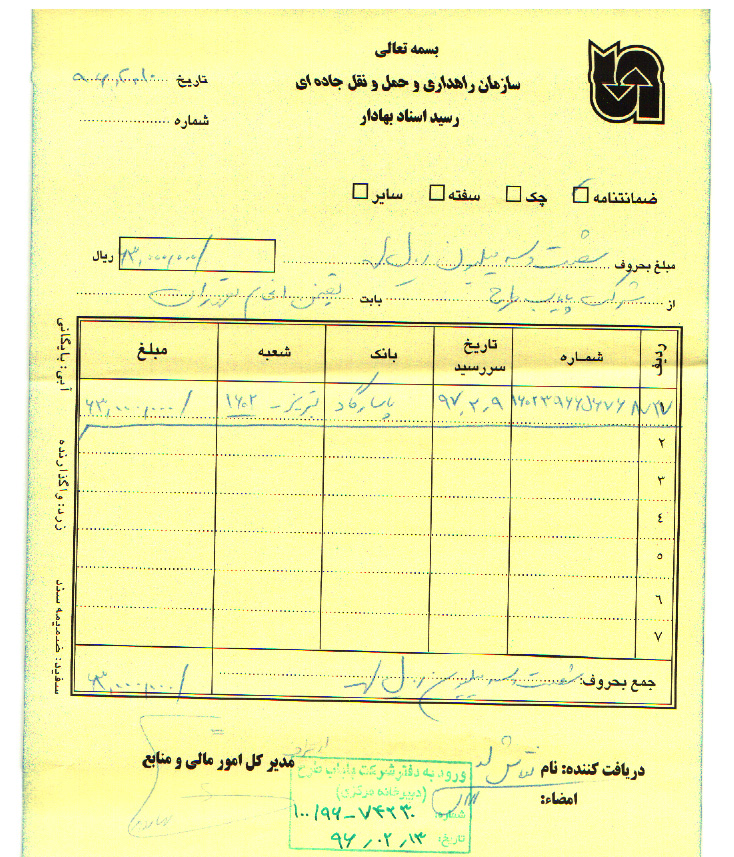 بسمه تعالی
سازمان راهداری و حمل و نقل جاده ای
رسید اسناد بهادار
تاریخ ۹۶,۲,۱۰
شماره
ضمانتنامه چک سفته سایر
مبلغ بحروف شصت و سه میلیون ریال ۶۳,۰۰۰,۰۰۰/ ریال
از شرکت پاراب طرح بابت تضمین انجام تعهدات
ردیف شماره تاریخ سررسید بانک شعبه مبلغ
۱ ۹۷,۲,۹ پاسارگاد تبریز - ۱۶۰۲ ۶۳,۰۰۰,۰۰۰/
۲
۳
۴
۵
۶
۷
جمع بحروف: شصت و سه میلیون ریال ۶۳,۰۰۰,۰۰۰/
آبی: بایگانی زرد: واگذارنده سفید: ضمیمه سند
دریافت کننده: نام
امضاء:
مدیر کل امور مالی و منابع
ورود به دفتر شرکت پاراب طرح
(دبیرخانه مرکزی)
شماره: ۱۰۰/۹۶-۷۴۲۳۰
تاریخ: ۹۶/۰۲/۱۳